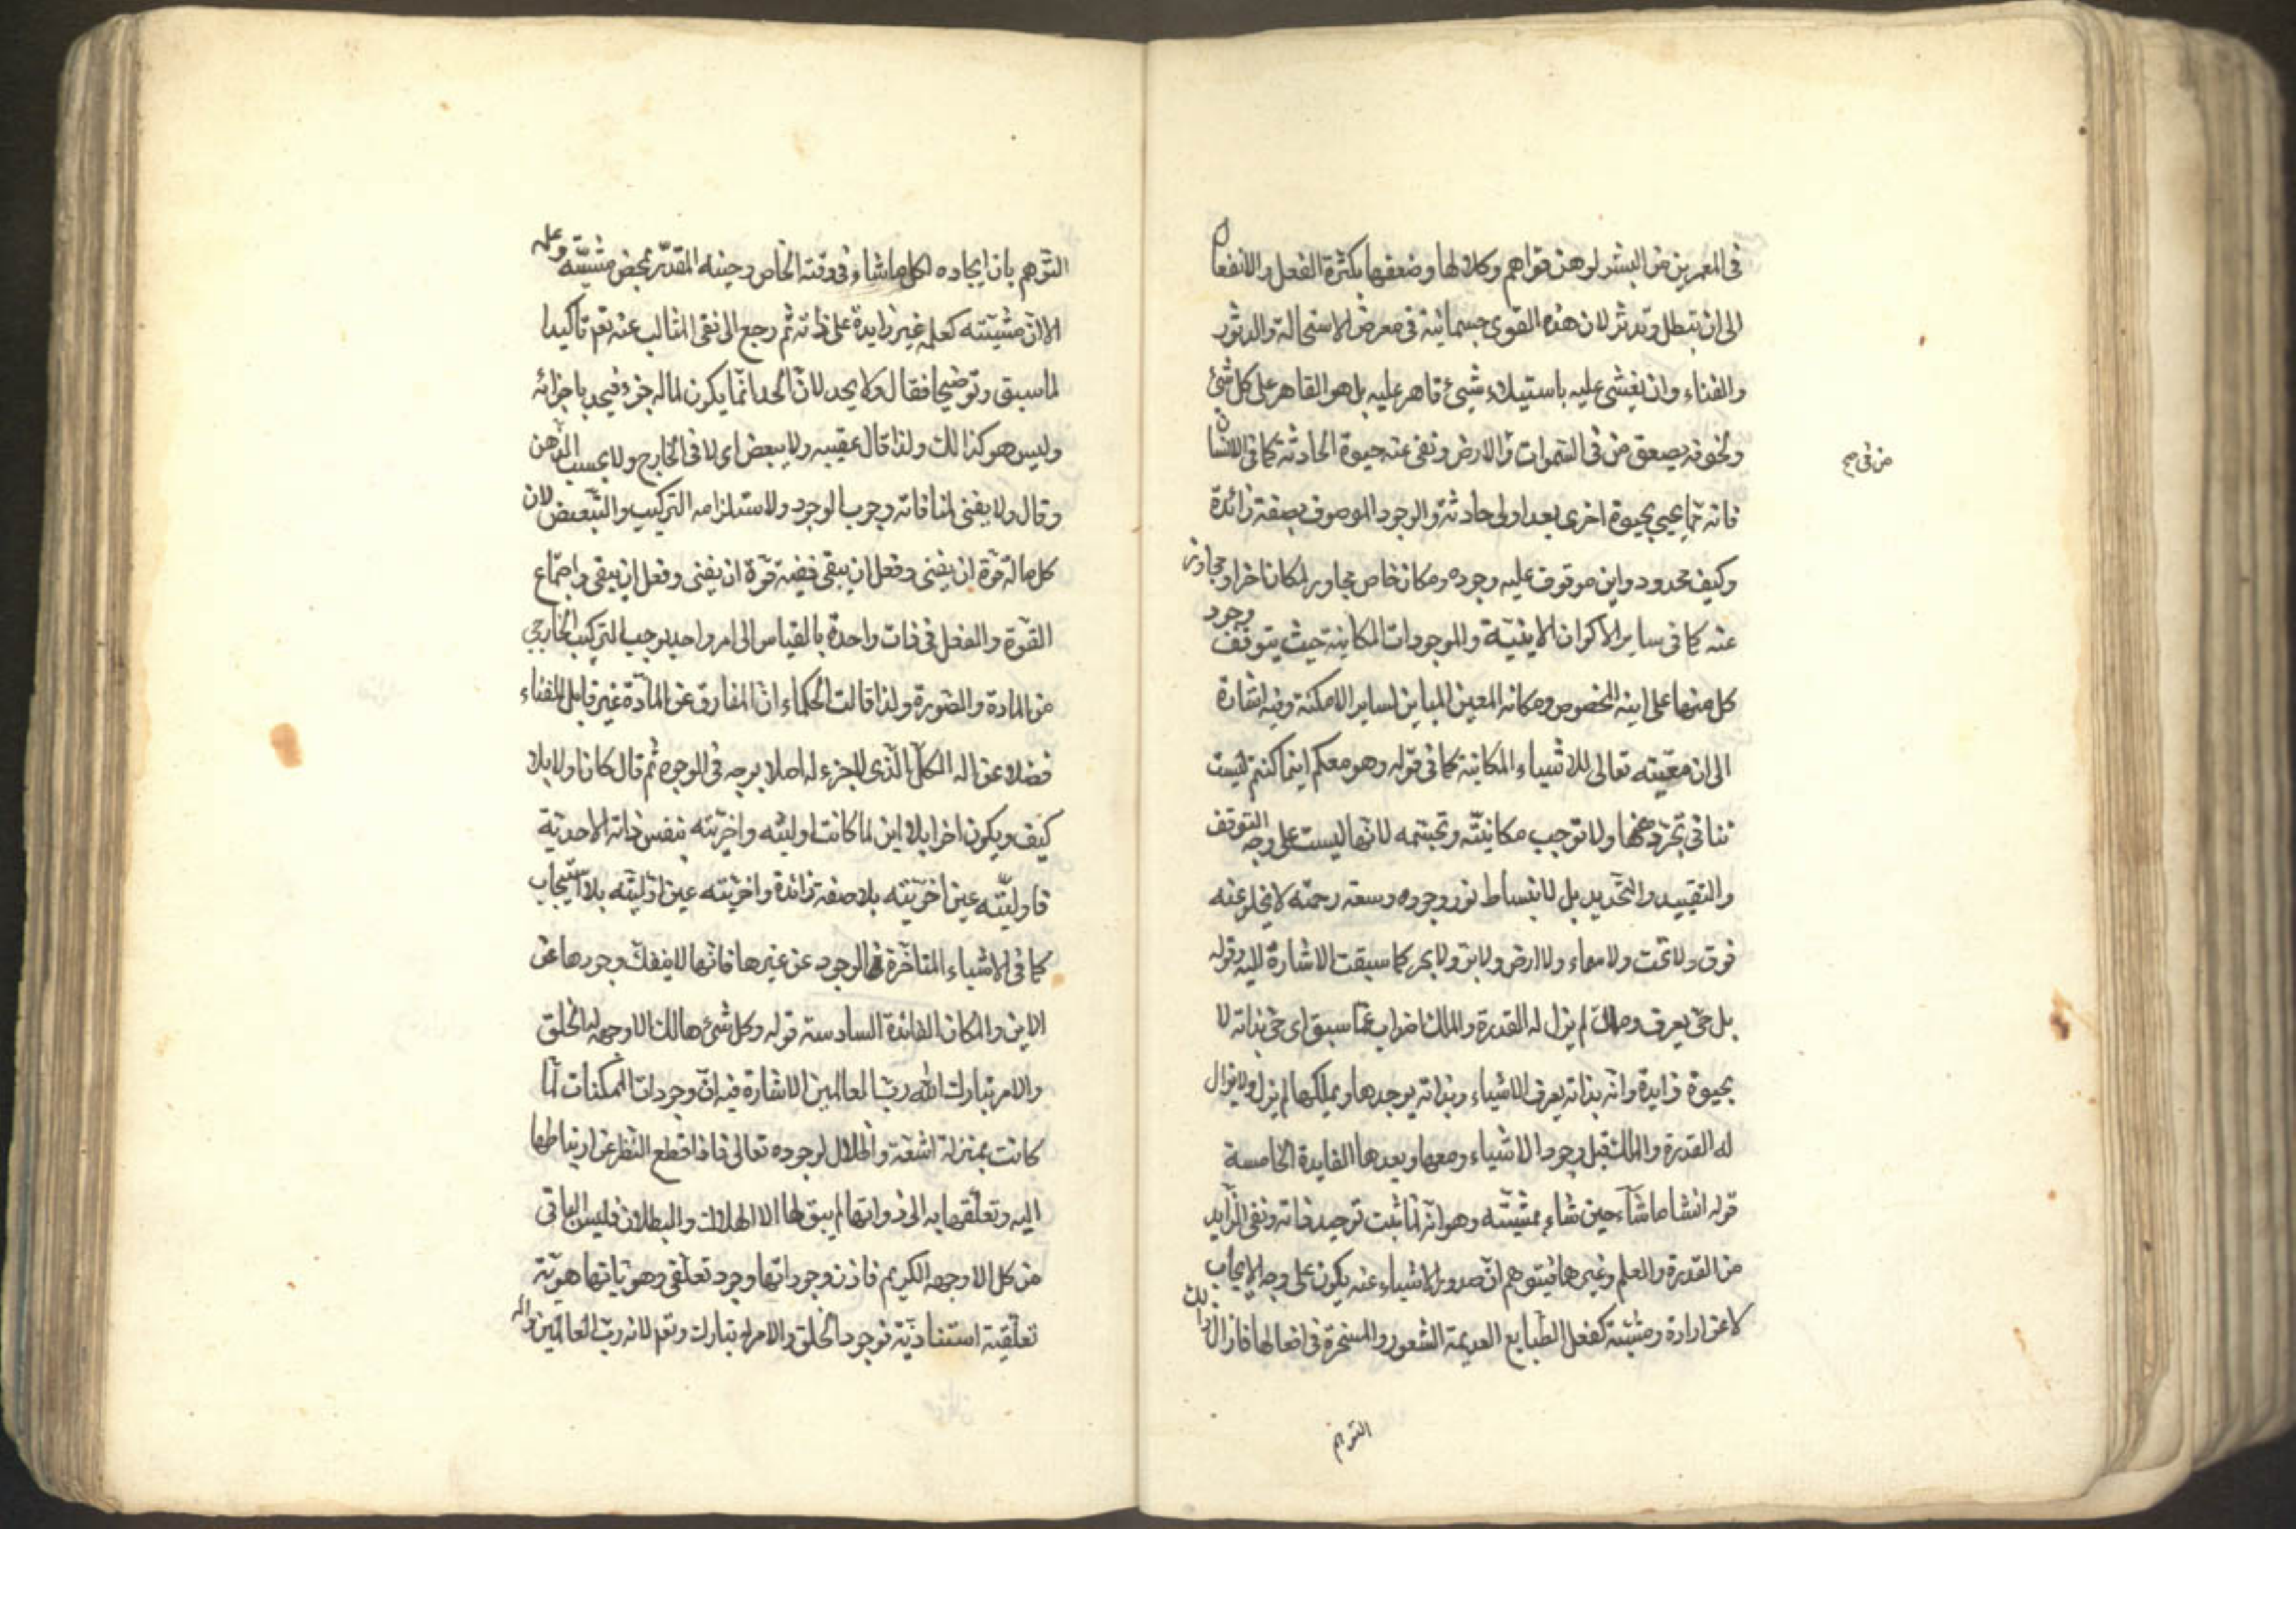 في المعمرين من البشر لوهن قواهم وكلالها وضعفها بكثرة الفعل والانفعال
الى ان تبطل وتدثر لان هذه القوى جسمانية في معرض الاستحالة والدثور
والفناء وان يغشى عليه باستيلاء شيئ قاهر عليه بل هو القاهر على كل شئ
ولخوفه يصعق من في السموات والارض ونفى عنه حيوة الحادثة كما في الانسان
من في صح
فانه مما يحيى بحيوة اخرى بعد اولى حادثة والوجود الموصوف بصفة زائدة
وكيف محدود واين موقوف عليه وجوده ومكان خاص مجاور لمكان اخر او مجاوز
عنه كما في ساير الاكوان الاينية والموجودات المكانية حيث يتوقف وجود
كل منها على اينه المخصوص ومكانه المعين المباين لساير الامكنة وفيه اشارة
الى ان معيته تعالى للاشياء المكانية كما في قوله وهو معكم اينما كنتم ليست
تنافي تجرده عنها ولا توجب مكانيته وتجسمه لانها ليست على وجه التوقف
والتقييد والتحديد بل لانبساط نور وجوده وسعة رحمته لا يخلو عنه
فوق ولا تحت ولا سماء ولا ارض ولا بر ولا بحر كما سبقت الاشارة اليه وقوله
بل حى يعرف وملك لم يزل له القدرة والملك اضراب عما سبق اى حى بذاته لا
بحيوة زايدة وانه بذاته يعرف الاشياء وبذاته يوجدها ويملكها لم يزل ولا يزال
له القدرة والملك قبل وجود الاشياء ومعها وبعدها الفايدة الخامسة
قوله انشا ما شاء حين شاء بمشيته وهو انه لما ثبت توحيد ذاته ونفى الزايد
من القدرة والعلم وغيرهما فيتوهم ان صدور الاشياء عنه يكون على وجه الايجاب
لا عن ارادة ومشية كفعل الطبايع العديمة الشعور والمسخرة في افعالها فازال ذالك
التوهم
التوهم بان ايجاده لكل ما شاء في وقته الخاص وحينه المقدر بمحض مشيته وعلمه
الا ان مشيته كعلمه غير زايدة على ذاته ثم رجع الى نفى المثالب عنه تعم تاكيدا
لما سبق وتوضيحا فقال ولا يحد لان الحد انما يكون لما له جزء فيحد باجزائه
وليس هو كذالك ولذا قال عقيبه ولا يبعض اى لا في الخارج ولا بحسب الذهن
وقال ولا يفنى لمنافاته وجوب الوجود ولاستلزامه التركيب والتبعيض لان
كل ما له قوة ان يفنى وفعل ان يبقى ففيه قوة ان يفنى وفعل ان يبقى واجتماع
القوة والفعل في ذات واحدة بالقياس الى امر واحد يوجب التركيب الخارجي
من المادة والصورة ولذا قالت الحكماء ان المفارق عن المادة غير قابل للفناء
فضلا عن اله الكل الذى لا جزء له اصلا بوجه في الوجوه ثم قال كان اولا بلا
كيف ويكون اخرا بلا اين لما كانت اوليته واخريته بنفس ذاته الاحدية
فاوليته عين اخريته بلا صفة زائدة واخريته عين اوليته بلا استيجاب
كما في الاشياء المتاخرة في الوجود عن غيرها فانها لا ينفك وجودها عن
الاين والمكان الفائدة السادسة قوله وكل شئ هالك الا وجهه له الخلق
والامر تبارك الله رب العالمين الاشارة فيه ان وجودات الممكنات لما
كانت بمنزلة اشعة واظلال لوجوده تعالى فاذا قطع النظر عن ارتباطها
اليه وتعلقها به الى ذواتها لم يبق لها الا الهلاك والبطلان فليس الباقى
من كل الا وجهه الكريم فاذن وجوداتها وجود تعلقى وهوياتها هوية
تعلقية استنادية فوجود الخلق والامر له تبارك وتعم لانه رب العالمين واله